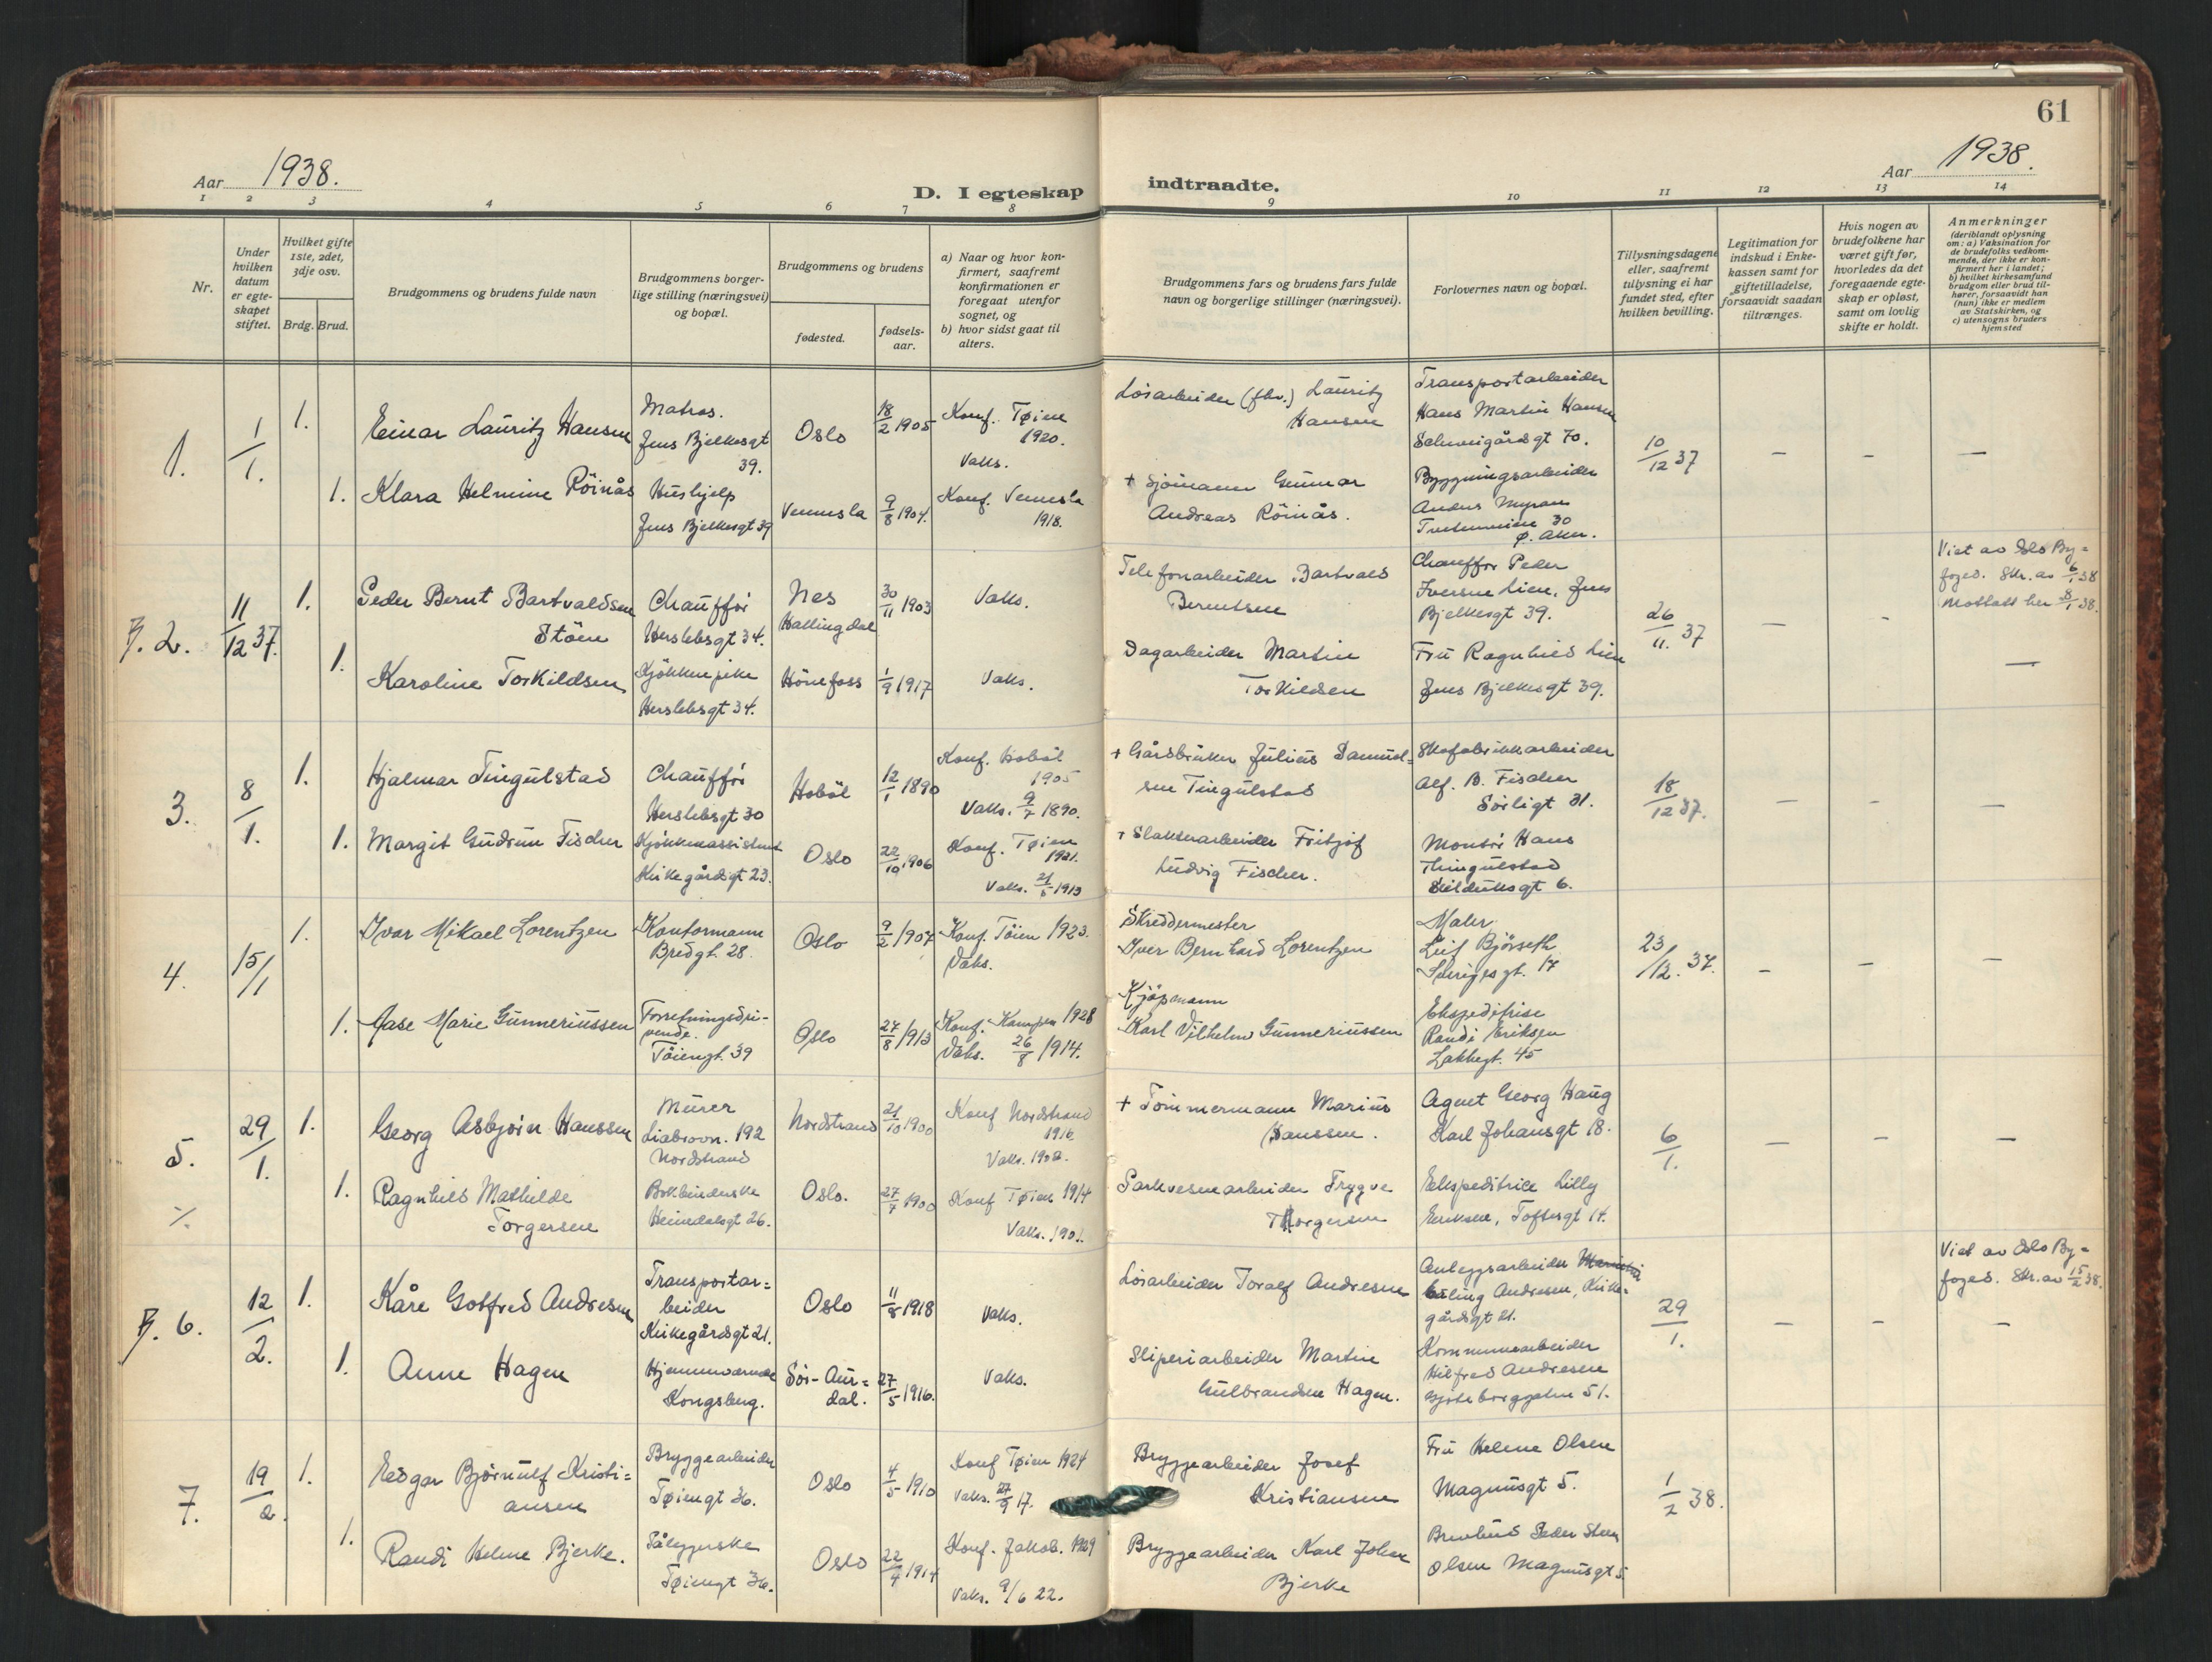 61
Aar 1938.
D. I egteskap indtraadte.
Aar 1938.
1 2 3 4 5 6 7 8 9 10 11 12 13 14
Nr.
Under
hvilken
datum
er egte-
skapet
stiftet.
Hvilket gifte
1ste, 2det,
3dje osv.
Brdg. Brud.
Brudgommens og brudens fulde navn
Brudgommens borger-
lige stilling (næringsvei)
og bopæl.
Brudgommens og brudens
fødested.
fødsels-
aar.
a) Naar og hvor kon-
firmert, saafremt
konfirmationen er
foregaat utenfor
sognet, og
b) hvor sidst gaat til
alters.
Brudgommens fars og brudens fars fulde
navn og borgerlige stillinger (næringsvei).
Forlovernes navn og bopæl.
Tillysningsdagene
eller, saafremt
tillysning ei har
fundet sted, efter
hvilken bevilling.
Legitimation for
indskud i Enke-
kassen samt for
giftetilladelse,
forsaavidt saadan
tiltrænges.
Hvis nogen av
brudefolkene har
været gift før,
hvorledes da det
foregaaende egte-
skap er opløst,
samt om lovlig
skifte er holdt.
Anmerkninger
(deriblandt oplysning
om: a) Vaksination for
de brudefolks vedkom-
mende, der ikke er kon-
firmert her i landet;
b) hvilket kirkesamfund
brudgom eller brud til-
hører, forsaavidt han
(hun) ikke er medlem
av Statskirken, og
c) utensogns bruders
hjemsted
1.
1/1.
1.
Einar Lauritz Hansen
Matros.
Jens Bjelkesgt
39.
Oslo
18/2 1905
Konf. Tøien
1920.
Vaks.
Løsarbeider (fhv.) Lauritz
Hansen
Transportarbeider
Hans Martin Hansen
Schweigårdsgt 70.
10/12 37
—
—
—
1.
Klara Helmine Röinås
Hushjelp
Jens Bjelkesgt 39
Vennesla
9/8 1904.
Konf. Vennesla
1918.
+ Sjömann Gunnar
Andreas Röinås.
Bygningsarbeider
Anders Myran
30
Ø. Aker.
B. 2.
11/12 37.
1.
Peder Bernt Bartvaldsen
Stöen
Chauffør
Herslebsgt 34.
Nes
Hallingdal
30/11 1903
Vaks.
Telefonarbeider Bartvald
Berentsen
Chauffør Peder
Iversen Lien, Jens
Bjelkesgt 39.
26/11. 37
—
-
Viet av Oslo By=
foged. Skr. av 6/1 38
Mottatt her 8/1 38.
1.
Karoline Torkildsen
Kjøkkenpike
Herslebsgt 34.
Hönefoss
1/9 1917
Vaks.
Dagarbeider Martin
Torkildsen
Fru Ragnhild Lien
Jens Bjelkesgt 39.
—
3.
8/1.
1.
Hjalmar Tingulstad
Chauffør
Herslebsgt 30
Hobøl
12/1 1890
Konf. Hobøl
1905
Vaks. 9/7 1890.
+ Gårdbruker Julius Samuel=
sen Tingulstad
Skofabrikkarbeider
Alf. B. Fischer
Sörligt 31.
18/12 37.
—
-
—
1.
Margit Gudrun Fischer
Kjøkkenassistent
Kirkegårdsgt 23.
Oslo
22/10 1906
Konf. Tøien
1921.
Vaks. 21/5 1913
+ Slakterarbeider Fritjof
Ludvig Fischer.
Montør Hans
Thingulstad
6.
4.
15/1
1.
Ivar Mikael Lorentzen
Kontormann
Bredgt. 28.
Oslo
9/2 1907
Konf. Töien 1923.
Vaks.
Skreddermester
Iver Bernhard Lorentzen
Maler
Leif Bjørseth
Schwigsgt. 17
23/12. 37.
—
—
—
1.
Aase Marie Gunneriussen
Forretningsdri-
vende.
Töiengt. 39
Oslo
27/8 1913
Konf. Kampen 1928
Vaks. 26/8 1914.
Kjøpmann
Karl Vilhelm Gunneriussen
Ekspeditrise
Randi Eriksen
Lakkegt. 45
5.
29/1.
1.
Georg Asbjørn Hanssen
Murer
Liabrovn. 192
Nordstrand
Nordstrand
21/10 1900
Konf Nordstrand
1916.
Vaks. 1902.
+ Tömmermann Marius
Hanssen.
Agent Georg Haug
Karl Johansgt 18.
6/1.
—
—
—
1.
Ragnhild Mathilde
Torgersen
Bokbinderske
Heimdalsgt 26.
Oslo.
27/7 1900
Konf Tøien 1914
Vaks. 1901.
Parkvesenarbeider Trygve
Thorgersen
Ekspeditrice Lilly
Eriksen, Toftesgt 14.
B. 6.
12/2.
1.
Kåre Gotfred Andresen
Transportar=
beider
Kirkegårdsgt 21.
Oslo
11/8 1918
Vaks.
Løsarbeider Toralf Andresen
Anleggsarbeider
Erling Andresen, Kirke=
gårdsgt 21.
29/1.
—
—
Viet av Oslo By=
foged. Skr. av 15/2 38.
—
1.
Anne Hagen
Hjemmeværende
Kongsberg.
Sör-Aur=
dal.
27/5 1916.
Vaks.
Sliperiarbeider Martin
Gulbrandsen Hagen.
Kommunearbeider
Hilfred Andresen
Gjøteborggaten 51.
7.
19/2.
1.
Edgar Bjørnulf Kristi=
ansen
Bryggearbeider
Tøiengt 36.
Oslo
4/5 1910
Konf Tøien 1924
Vaks. 27/9 17.
Bryggearbeider Josef
Kristiansen
Fru Helene Olsen
Magnusgt 5.
1/2 38.
1.
Randi Helene Bjerke.
Påleggerske
Tøiengt 36.
Oslo
22/4 1914
Konf. Jakob. 1929
Vaks. 9/6 22.
Bryggearbeider Karl Johan
Bjerke
Peder Steen
Olsen Magnusgt 5